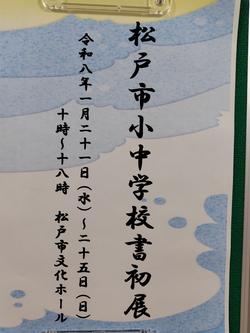 松戸市小中学校書初展
令和八年一月二十一日（水）～二十五日（日）
十時～十八時　松戸市文化ホール